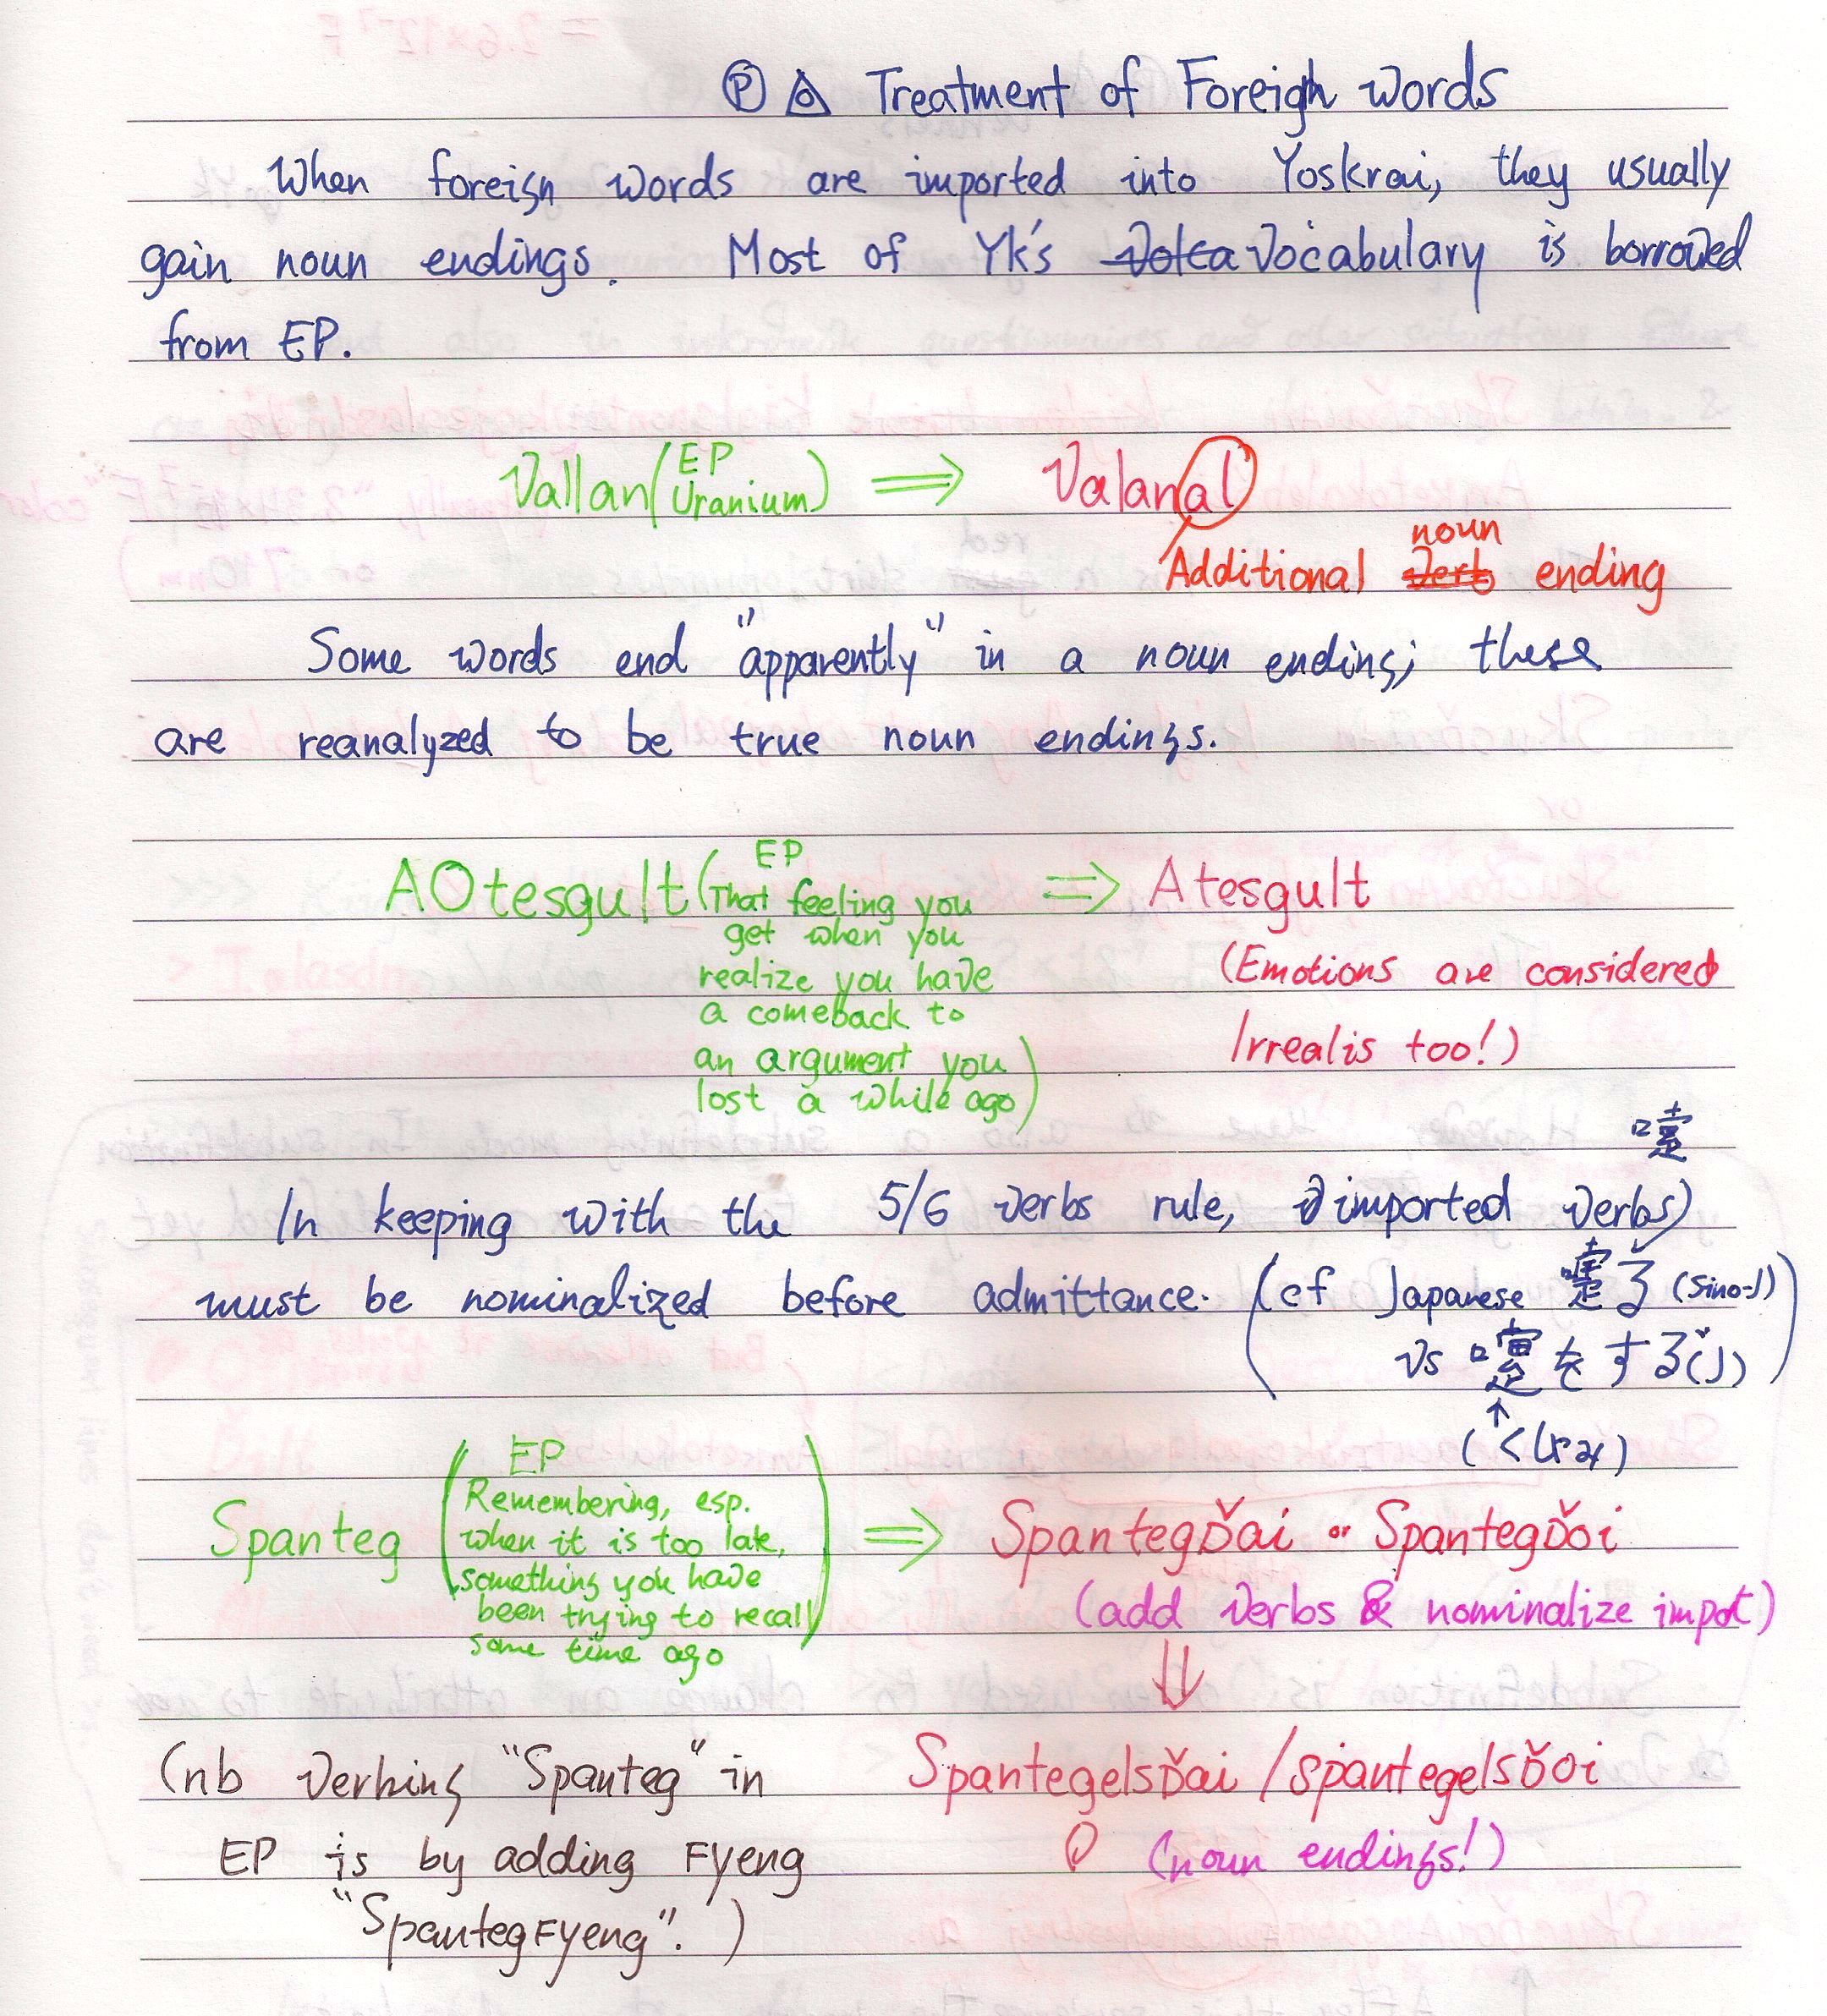 Ⓟ Treatment of Foreign words
When foreign words are imported into Yoskrai, they usually
gain noun endings. Most of Yk's Vocabulary is borrowed
from EP.
Vallan (EP Uranium) ⟹ Valanal
Additional noun ending
Some words end "apparently" in a noun ending; these
are reanalyzed to be true noun endings.
AOtesgult (EP
That feeling you
get when you
realize you have
a comeback to
an argument you
lost a while ago)
⟹ Atesgult
(Emotions are considered
Irrealis too!)
In keeping with the 5/6 verbs rule, imported verbs
must be nominalized before admittance. (cf Japanese る (Sino-J)
vs をする (J)
Spanteg (EP
Remembering, esp.
when it is too late,
something you have
been trying to recall
some time ago)
⟹ SpantegĎai or SpantegĎoi
(add verbs & nominalize impot)
⇓
SpantegelsĎai / spantegelsĎoi
(noun endings!)
(nb Verbing "Spanteg" in
EP is by adding Fyeng
"SpantegFyeng".)